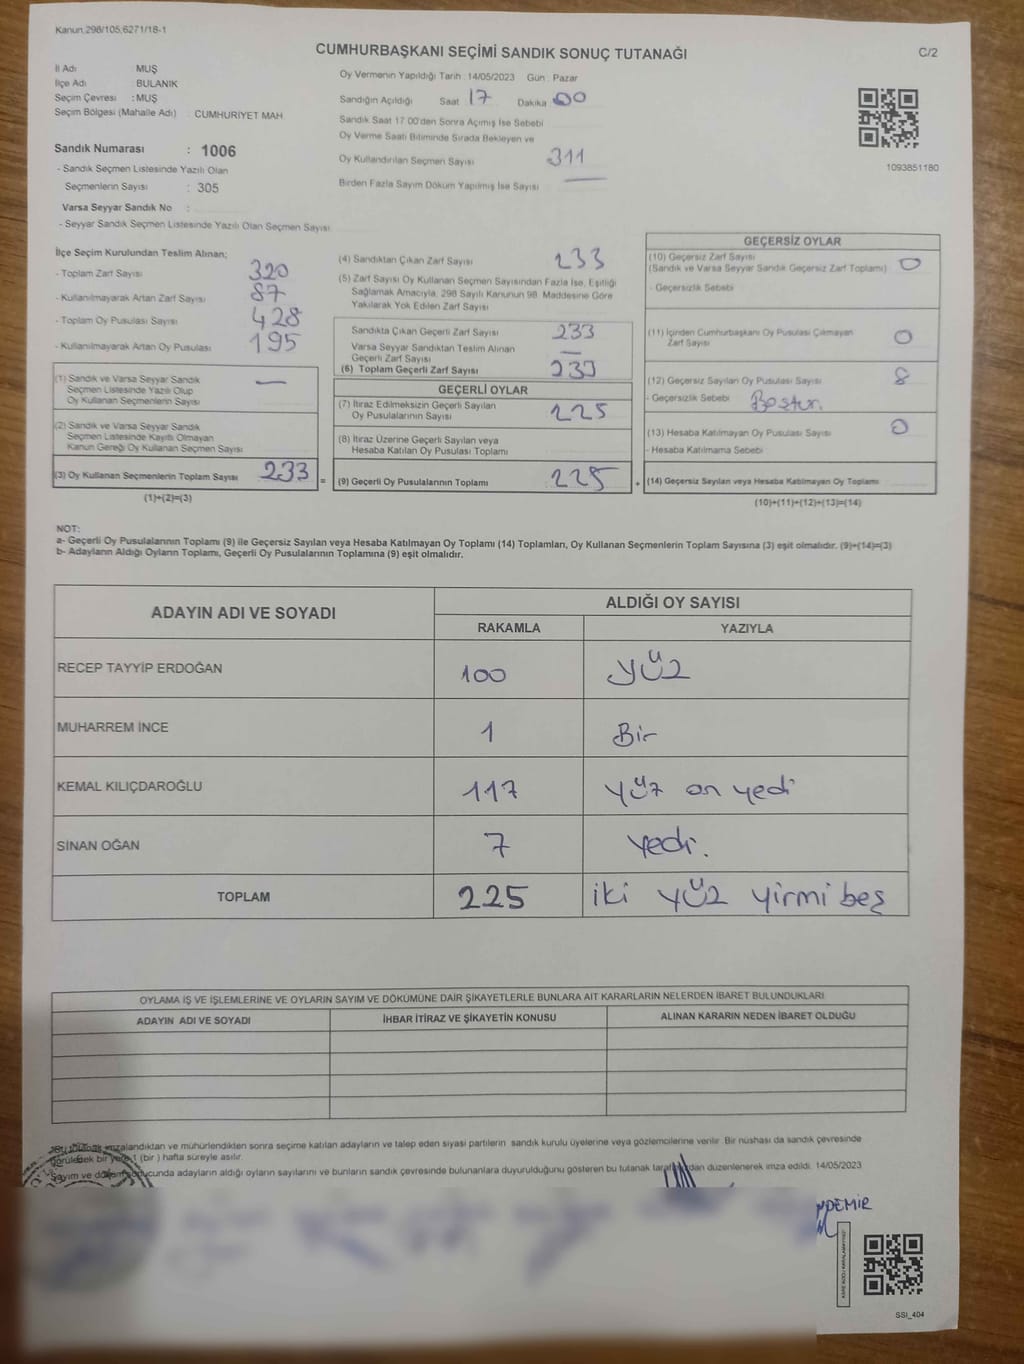 Kanun,298/105,6271/18-1
CUMHURBAŞKANI SEÇİMİ SANDIK SONUÇ TUTANAĞI
C/2
İl Adı MUŞ
İlçe Adı BULANIK
Seçim Çevresi : MUŞ
Seçim Bölgesi (Mahalle Adı) : CUMHURİYET MAH
Sandık Numarası : 1006
- Sandık Seçmen Listesinde Yazılı Olan
Seçmenlerin Sayısı : 305
Varsa Seyyar Sandık No :
- Seyyar Sandık Seçmen Listesinde Yazılı Olan Seçmen Sayısı
Oy Vermenin Yapıldığı Tarih : 14/05/2023 Gün : Pazar
Sandığın Açıldığı Saat 17 Dakika 00
Sandık Saat 17 00'den Sonra Açımış İse Sebebi
Oy Verme Saati Bitiminde Sırada Bekleyen ve
Oy Kullandırılan Seçmen Sayısı 311
Birden Fazla Sayım Döküm Yapılmış İse Sayısı —
1093851180
İlçe Seçim Kurulundan Teslim Alınan;
- Toplam Zarf Sayısı 320
- Kullanılmayarak Artan Zarf Sayısı 87
- Toplam Oy Pusulası Sayısı 428
- Kullanılmayarak Artan Oy Pusulası 195
(1) Sandık ve Varsa Seyyar Sandık
Seçmen Listesinde Yazılı Olup
Oy Kullanan Seçmenlerin Sayısı —
(2) Sandık ve Varsa Seyyar Sandık
Seçmen Listesinde Kayıtlı Olmayan
Kanun Gereği Oy Kullanan Seçmen Sayısı
(3) Oy Kullanan Seçmenlerin Toplam Sayısı 233 =
(1)+(2)=(3)
(4) Sandıktan Çıkan Zarf Sayısı 233
(5) Zarf Sayısı Oy Kullanan Seçmen Sayısından Fazla İse, Eşitliği
Sağlamak Amacıyla, 298 Sayılı Kanunun 98. Maddesine Göre
Yakılarak Yok Edilen Zarf Sayısı
Sandıkta Çıkan Geçerli Zarf Sayısı 233
Varsa Seyyar Sandıktan Teslim Alınan
Geçerli Zarf Sayısı —
(6) Toplam Geçerli Zarf Sayısı 233
GEÇERLİ OYLAR
(7) İtiraz Edilmeksizin Geçerli Sayılan
Oy Pusulalarının Sayısı 225
(8) İtiraz Üzerine Geçerli Sayılan veya
Hesaba Katılan Oy Pusulası Toplamı
(9) Geçerli Oy Pusulalarının Toplamı 225 +
GEÇERSİZ OYLAR
(10) Geçersiz Zarf Sayısı
(Sandık ve Varsa Seyyar Sandık Geçersiz Zarf Toplamı) 0
- Geçersizlik Sebebi
(11) İçinden Cumhurbaşkanı Oy Pusulası Çıkmayan
Zarf Sayısı 0
(12) Geçersiz Sayılan Oy Pusulası Sayısı 8
- Geçersizlik Sebebi
(13) Hesaba Katılmayan Oy Pusulası Sayısı 0
- Hesaba Katılmama Sebebi
(14) Geçersiz Sayılan veya Hesaba Katılmayan Oy Toplamı
(10)+(11)+(12)+(13)=(14)
NOT:
a- Geçerli Oy Pusulalarının Toplamı (9) ile Geçersiz Sayılan veya Hesaba Katılmayan Oy Toplamı (14) Toplamları, Oy Kullanan Seçmenlerin Toplam Sayısına (3) eşit olmalıdır. (9)+(14)=(3)
b- Adayların Aldığı Oyların Toplamı, Geçerli Oy Pusulalarının Toplamına (9) eşit olmalıdır.
ADAYIN ADI VE SOYADI
ALDIĞI OY SAYISI
RAKAMLA YAZIYLA
RECEP TAYYİP ERDOĞAN 100 yüz
MUHARREM İNCE 1 Bir
KEMAL KILIÇDAROĞLU 117 yüz on yedi
SİNAN OĞAN 7 yedi.
TOPLAM 225 iki yüz yirmi beş
OYLAMA İŞ VE İŞLEMLERİNE VE OYLARIN SAYIM VE DÖKÜMÜNE DAİR ŞİKAYETLERLE BUNLARA AİT KARARLARIN NELERDEN İBARET BULUNDUKLARI
ADAYIN ADI VE SOYADI İHBAR İTİRAZ VE ŞİKAYETİN KONUSU ALINAN KARARIN NEDEN İBARET OLDUĞU
imzalandıktan ve mühürlendikten sonra seçime katılan adayların ve talep eden siyasi partilerin sandık kurulu üyelerine veya gözlemcilerine verilir. Bir nüshası da sandık çevresinde
görülecek bir yere 1 (bir ) hafta süreyle asılır.
Sayım ve döküm sonucunda adayların aldığı oyların sayılarını ve bunların sandık çevresinde bulunanlara duyurulduğunu gösteren bu tutanak tarafımızdan düzenlenerek imza edildi. 14/05/2023
DEMİR
SSİ_404